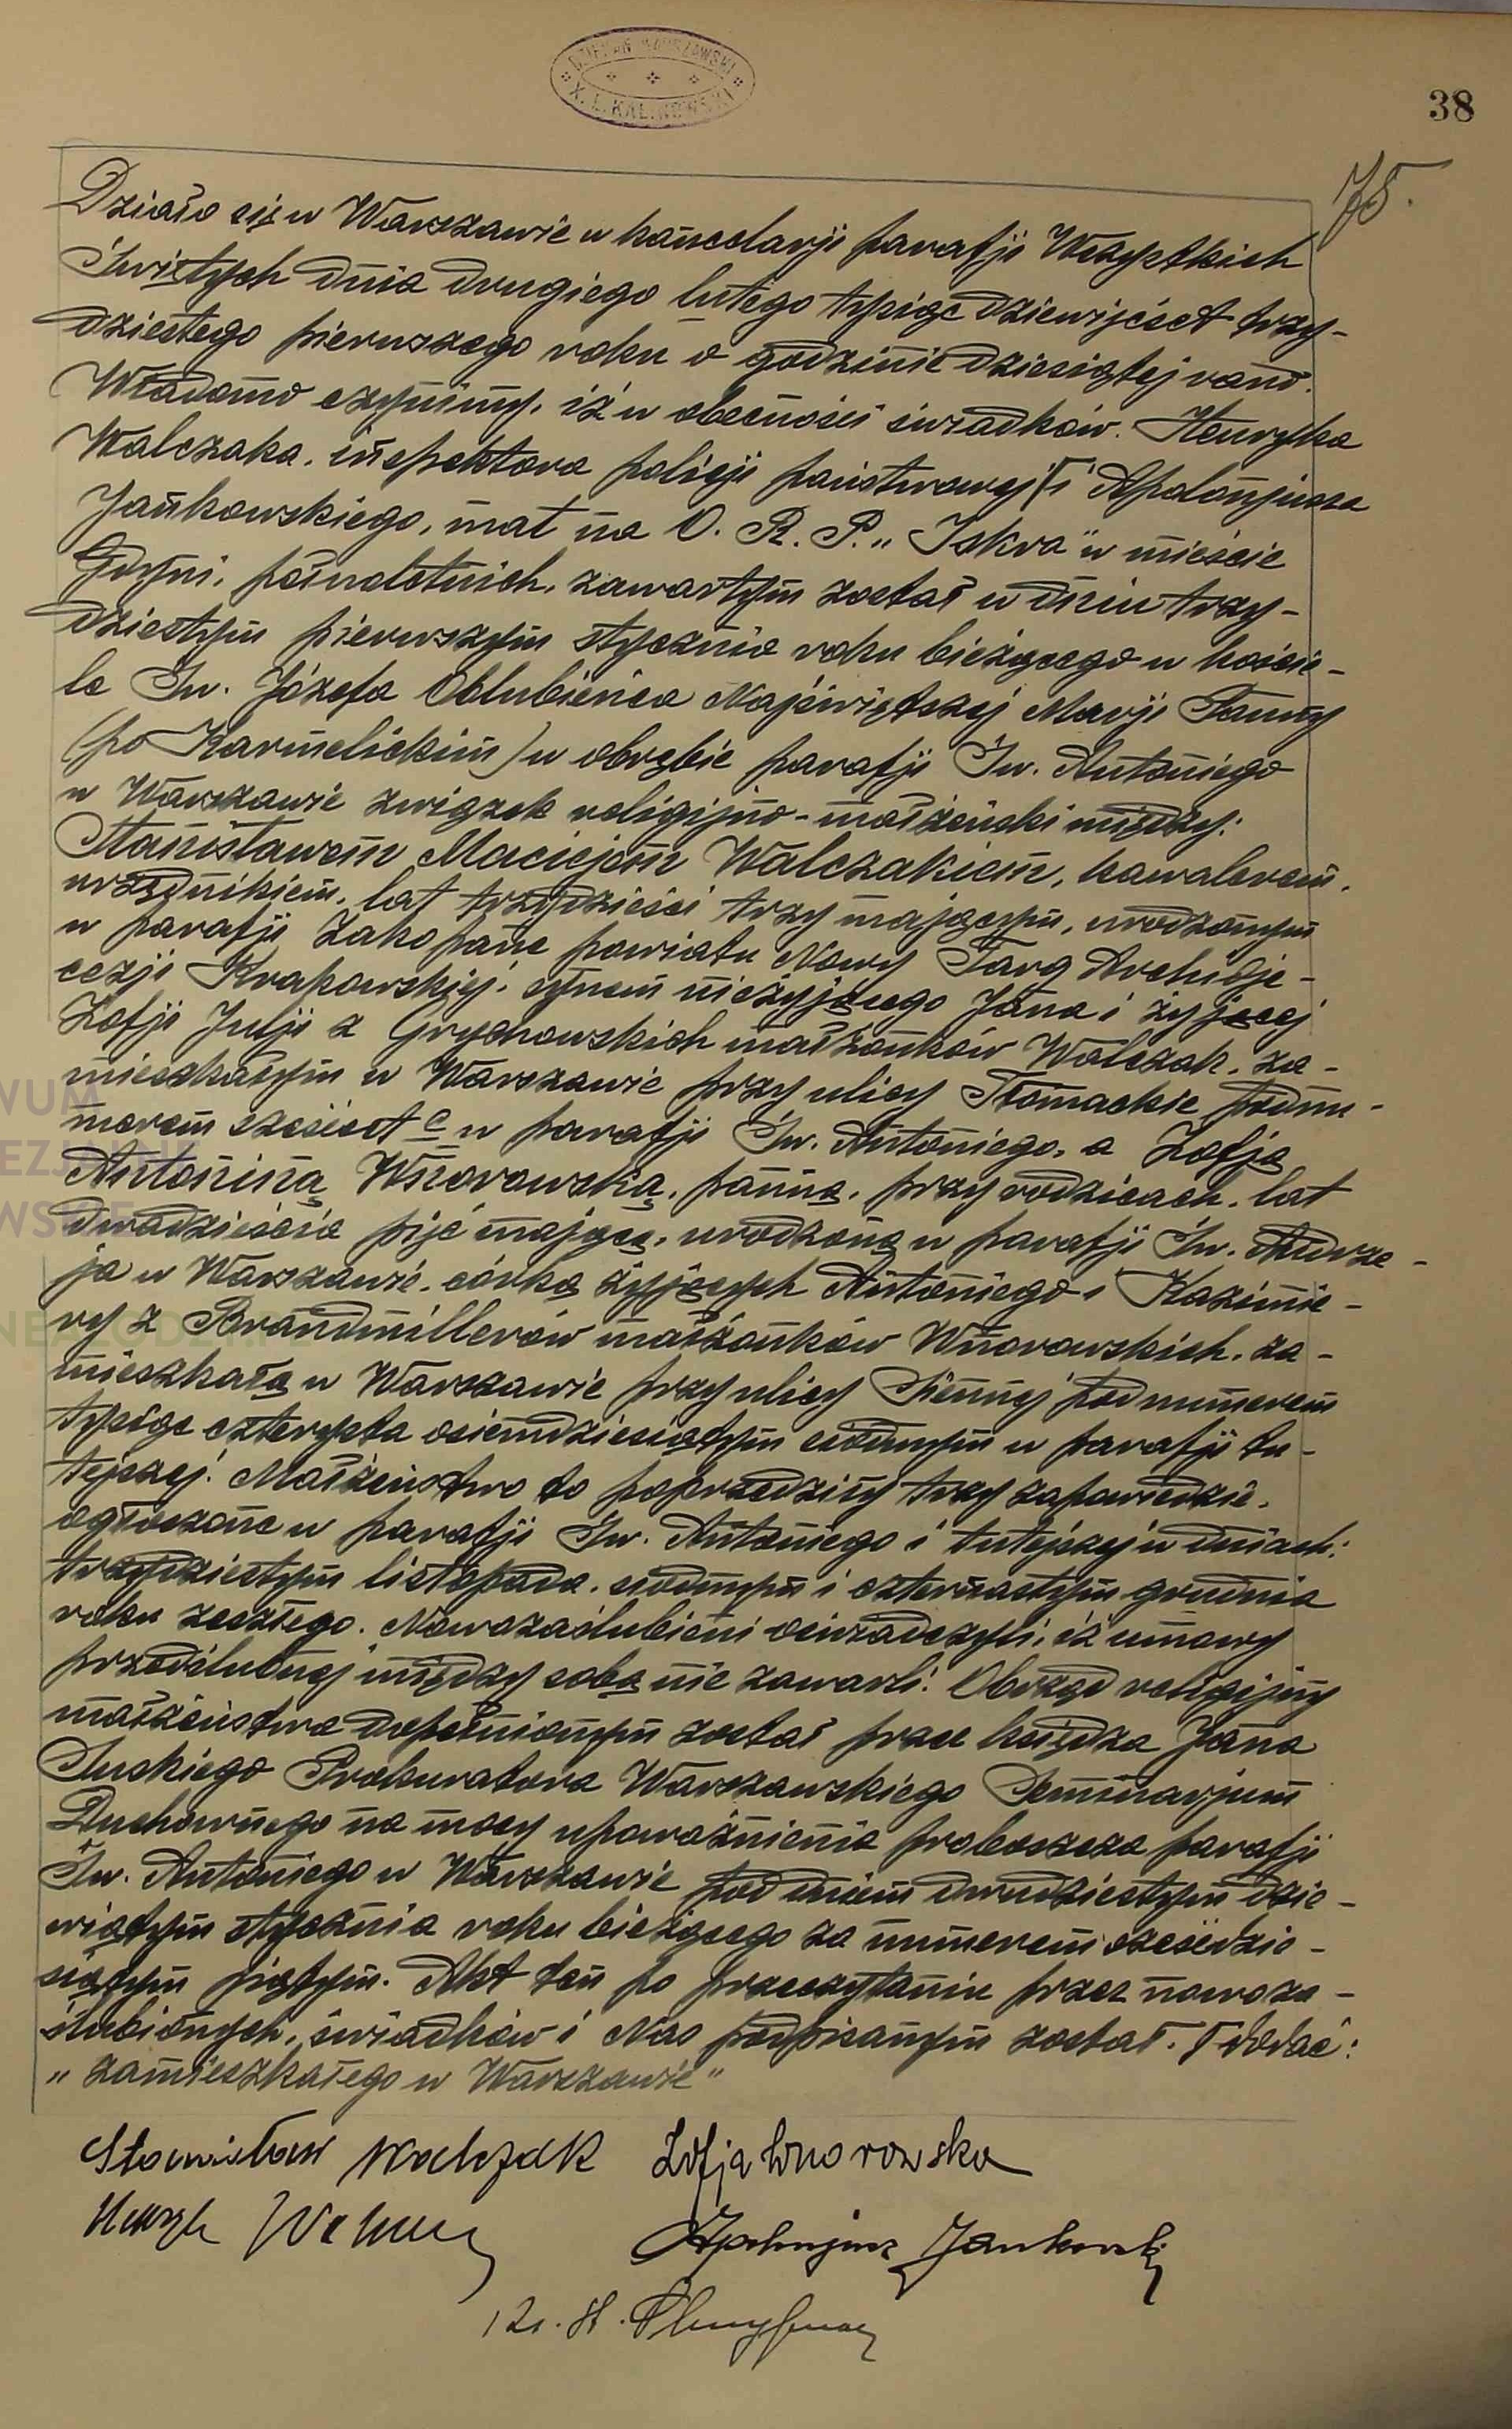 DZIEKAN WARSZAWSKI
X. L. KALINOWSKI
38
75.
Działo się w Warszawie w kancelarji parafji Wszystkich
Świętych dnia drugiego lutego tysiąc dziewięćset trzy-
dziestego pierwszego roku o godzinie dziesiątej rano.
Wiadomo czynimy, iż w obecności świadków. Henryka
Walczaka, inspektora policji państwowej Γ i Apolonjusza
Jankowskiego, mat na O. R. P. „Iskra" w mieście
Gdyni, pełnoletnich, zawartym został w dniu trzy-
dziestym pierwszym stycznia roku bieżącego w koście-
le Św. Józefa Oblubieńca Najświętszej Marji Panny
(po Karmelickim) w obrębie parafji Św. Antoniego
w Warszawie związek religijno-małżeński między:
Stanisławem Maciejem Walczakiem, kawalerem,
urzędnikiem, lat trzydzieści trzy mającym, urodzonym
w parafji Zakopane powiatu Nowy Targ Archidje-
cezji Krakowskiej, synem nieżyjącego Jana i żyjącej
Zofji Julji z Grychowskich małżonków Walczak, za-
mieszkałym w Warszawie przy ulicy Tłomackie pod nu-
merem sześćset c w parafji Św. Antoniego, a Zofją
Antoniną Wnorowską, panną, przy rodzicach, lat
dwadzieścia pięć mającą, urodzoną w parafji Św. Andrze-
ja w Warszawie, córką żyjących Antoniego i Kazimie-
ry z Brandmillerów małżonków Wnorowskich, za-
mieszkałą w Warszawie przy ulicy Siennej pod numerem
tysiąc czterysta osiemdziesiątym siódmym w parafji tu-
tejszej. Małżeństwo to poprzedziły trzy zapowiedzie,
ogłoszone w parafji Św. Antoniego i tutejszej w dniach:
trzydziestym listopada, siódmym i czternastym grudnia
roku zeszłego. Nowozaślubieni oświadczyli, iż umowy
przedślubnej między sobą nie zawarli. Obrzęd religijny
małżeństwa dopełnionym został przez księdza Jana
Suskiego Prokuratora Warszawskiego Seminarjum
Duchownego na mocy upoważnienia proboszcza parafji
Św. Antoniego w Warszawie pod dniem dwudziestym dzie-
wiątym stycznia roku bieżącego za numerem sześćdzie-
siątym piątym. Akt ten po przeczytaniu przez nowoza-
ślubionych, świadków i Nas podpisanym został. Γ dodać:
„zamieszkałego w Warszawie"
Stanisław Walczak Zofja Wnorowska
Henryk Walczak
Apolonjusz Jankowski